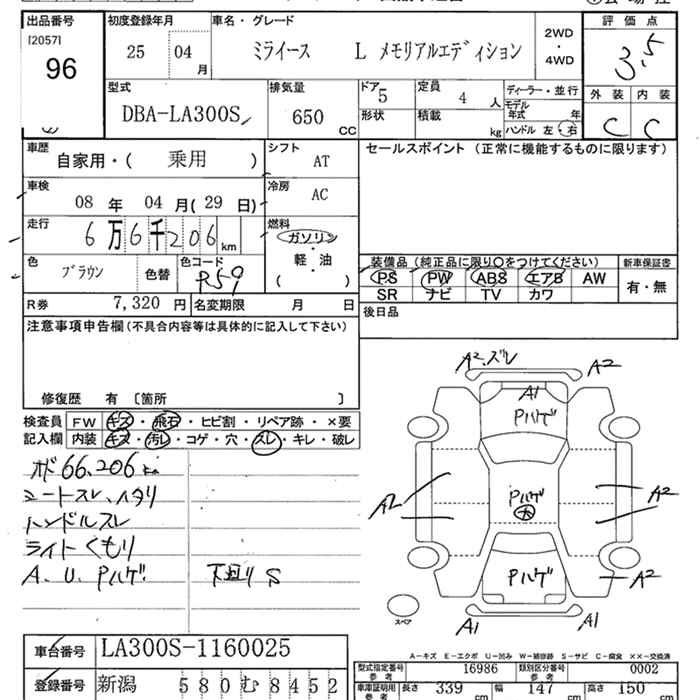 出品番号
[2057]
96
初度登録年月
25 04 月
車名・グレード
ミライース L メモリアルエディション
2WD
・
4WD
評価点
3.5
外装 内装
C C
型式
DBA-LA300S
排気量
650 CC
ドア 5
形状
定員 4 人
積載 kg
ディーラー・並行
モデル年式 年
ハンドル 左・右
車歴
自家用・( 乗用 )
シフト
AT
車検
08 年 04 月(29 日)
冷房
AC
走行
6万6千206km
燃料
ガソリン
・
軽・油
( )
色
ブラウン
色替
色コード
R59
R券 7,320 円
名変期限 月 日
セールスポイント (正常に機能するものに限ります)
装備品(純正品に限り○をつけてください)
新車保証書
PS PW ABS エアB AW
SR ナビ TV カワ
有・無
後日品
注意事項申告欄(不具合内容等は具体的に記入して下さい)
修復歴 有 〔箇所 〕
検査員
記入欄
FW キズ・飛石・ヒビ割・リペア跡・×要
内装 キズ・汚レ・コゲ・穴・スレ・キレ・破レ
メド 66,206 km
シートスレ、ヘタリ
ハンドルスレ
ライトくもり
A.U.Pハゲ 下廻りS
A2.ズレ
A2
A1
Pハゲ
A2
Pハゲ
大
A2
Pハゲ
A2
スペア
A1
A1
A-キズ E-エクボ U-凹み W-補修跡 S-サビ C-腐食 ××-交換済
車台番号 LA300S-1160025
登録番号 新潟 580む8452
型式指定番号
参考
16986
類別区分番号
参考
0002
車庫証明用
参考
長さ 339 cm
幅 147 cm
高さ 150 cm